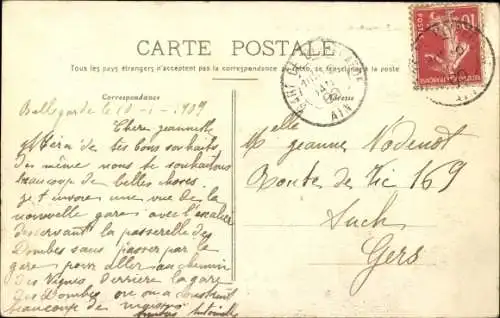 CARTE POSTALE
Tous les pays étrangers n'acceptent pas la correspondance au recto, se renseigner à la poste
Correspondance
Bellegarde le 10-1-1909
Chère jeannette
Merci de tes bons souhaits
de même nous te souhaitons
beaucoup de belles choses.
je t'envoie une vue de la
nouvelle gare avec l'escalier
desservant la passerelle des
Dombes sans passer par la
gare pour aller au chemin
des Vignes derrière la gare
des Dombes on a construit
beaucoup de
10
POSTES
AIN
Melle Jeanne Nodenot
Route de Vic 169
Auch
Gers